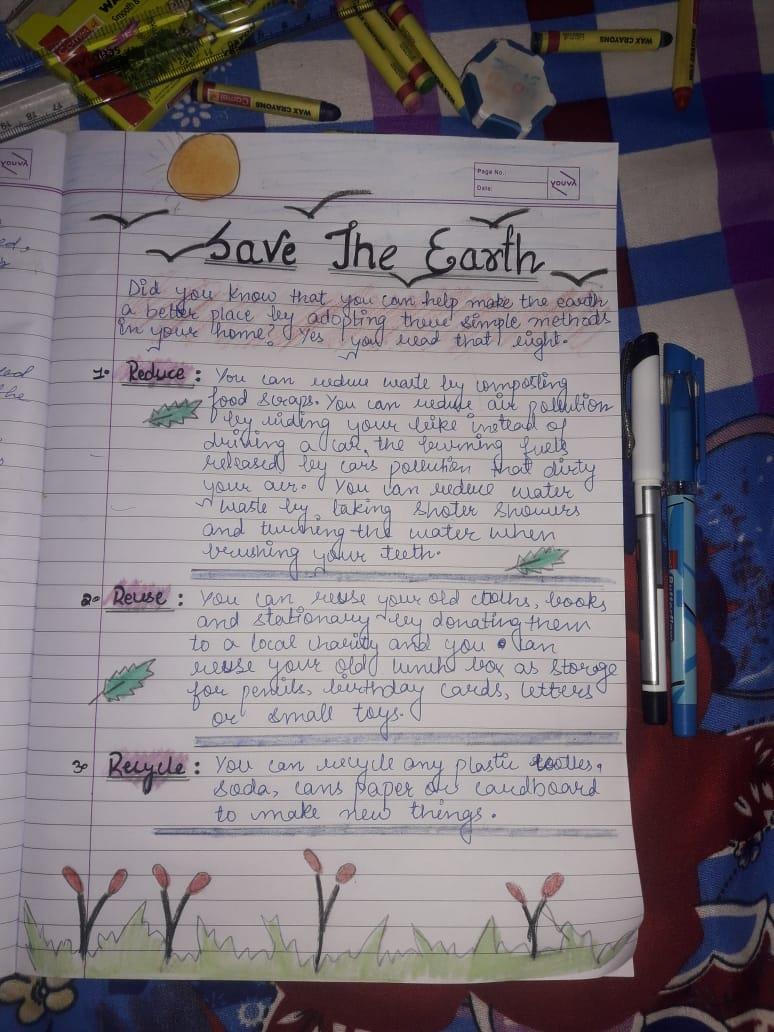 WAX CRAYONS
Camel
WAX CRAYONS
WAX CRAYONS
19 18 17 16
youva
Page No.:
Date:
youva
Save The Earth
Did you know that you can help make the earth
a better place by adopting these simple methods
in your home? Yes you read that right.
1. Reduce : You can reduce waste by composting
food scraps. You can reduce air pollution
by riding your bike instead of
driving a car, the burning fuels
released by cars pollution that dirty
your air. You can reduce water
waste by taking shoter showers
and turning the water when
brushing your teeth.
2. Reuse : You can reuse your old cloths, books
and stationary by donating them
to a local charity and you can
reuse your old lunch box as storage
for pencils, birthday cards, letters
or small toys.
3. Recycle : You can recycle any plastic bottles,
soda, cans paper or cardboard
to make new things.